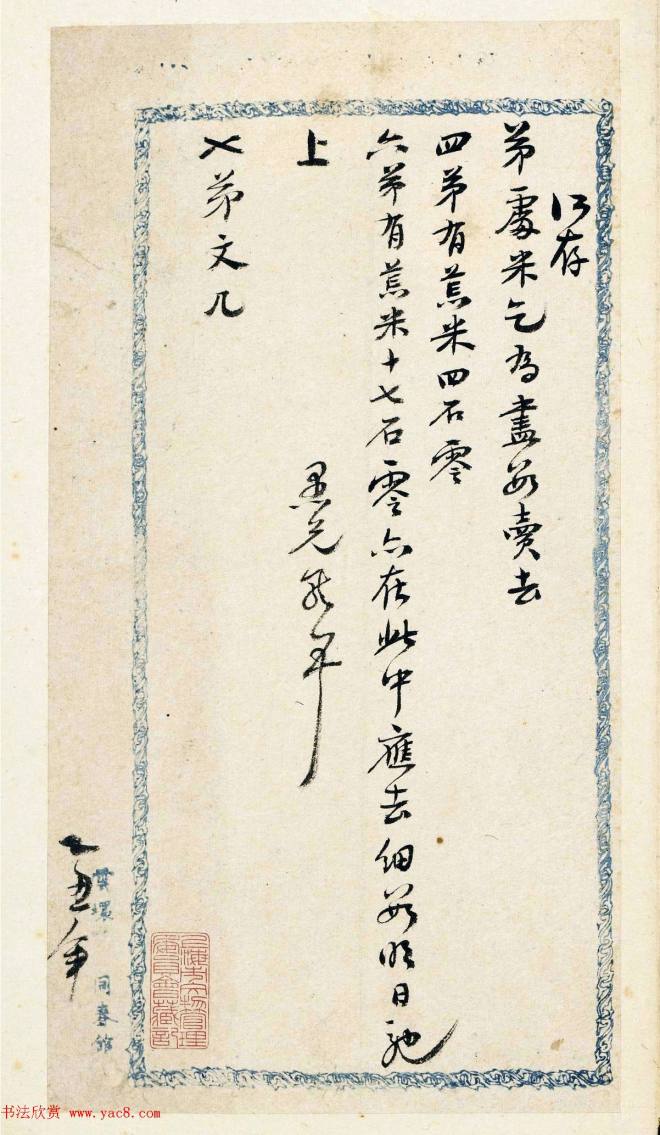 存
弟處米乞為盡數賣去
四弟有荒米四石零
六弟有荒米十七石零亦在此中應去細數明日馳
上
愚兄
弟文几
乙丑年
同春館
书法欣赏 www.yac8.com